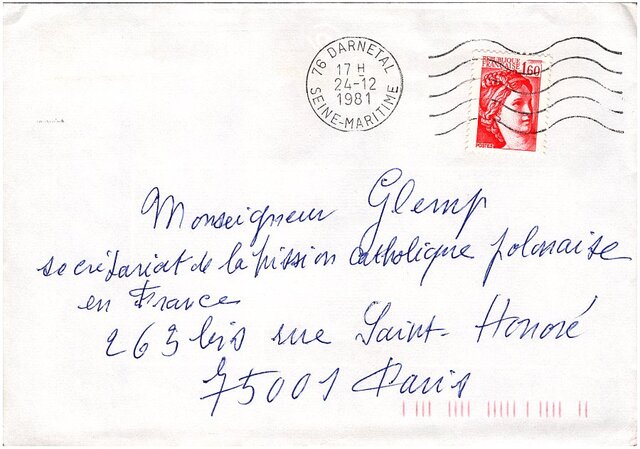 76 DARNETAL
17 H
24-12
1981
SEINE-MARITIME
REPUBLIQUE
FRANÇAISE
1,60
POSTES
Monseigneur Glemp
secrétariat de la Mission catholique polonaise
en France
263 bis rue Saint-Honoré
75001 Paris